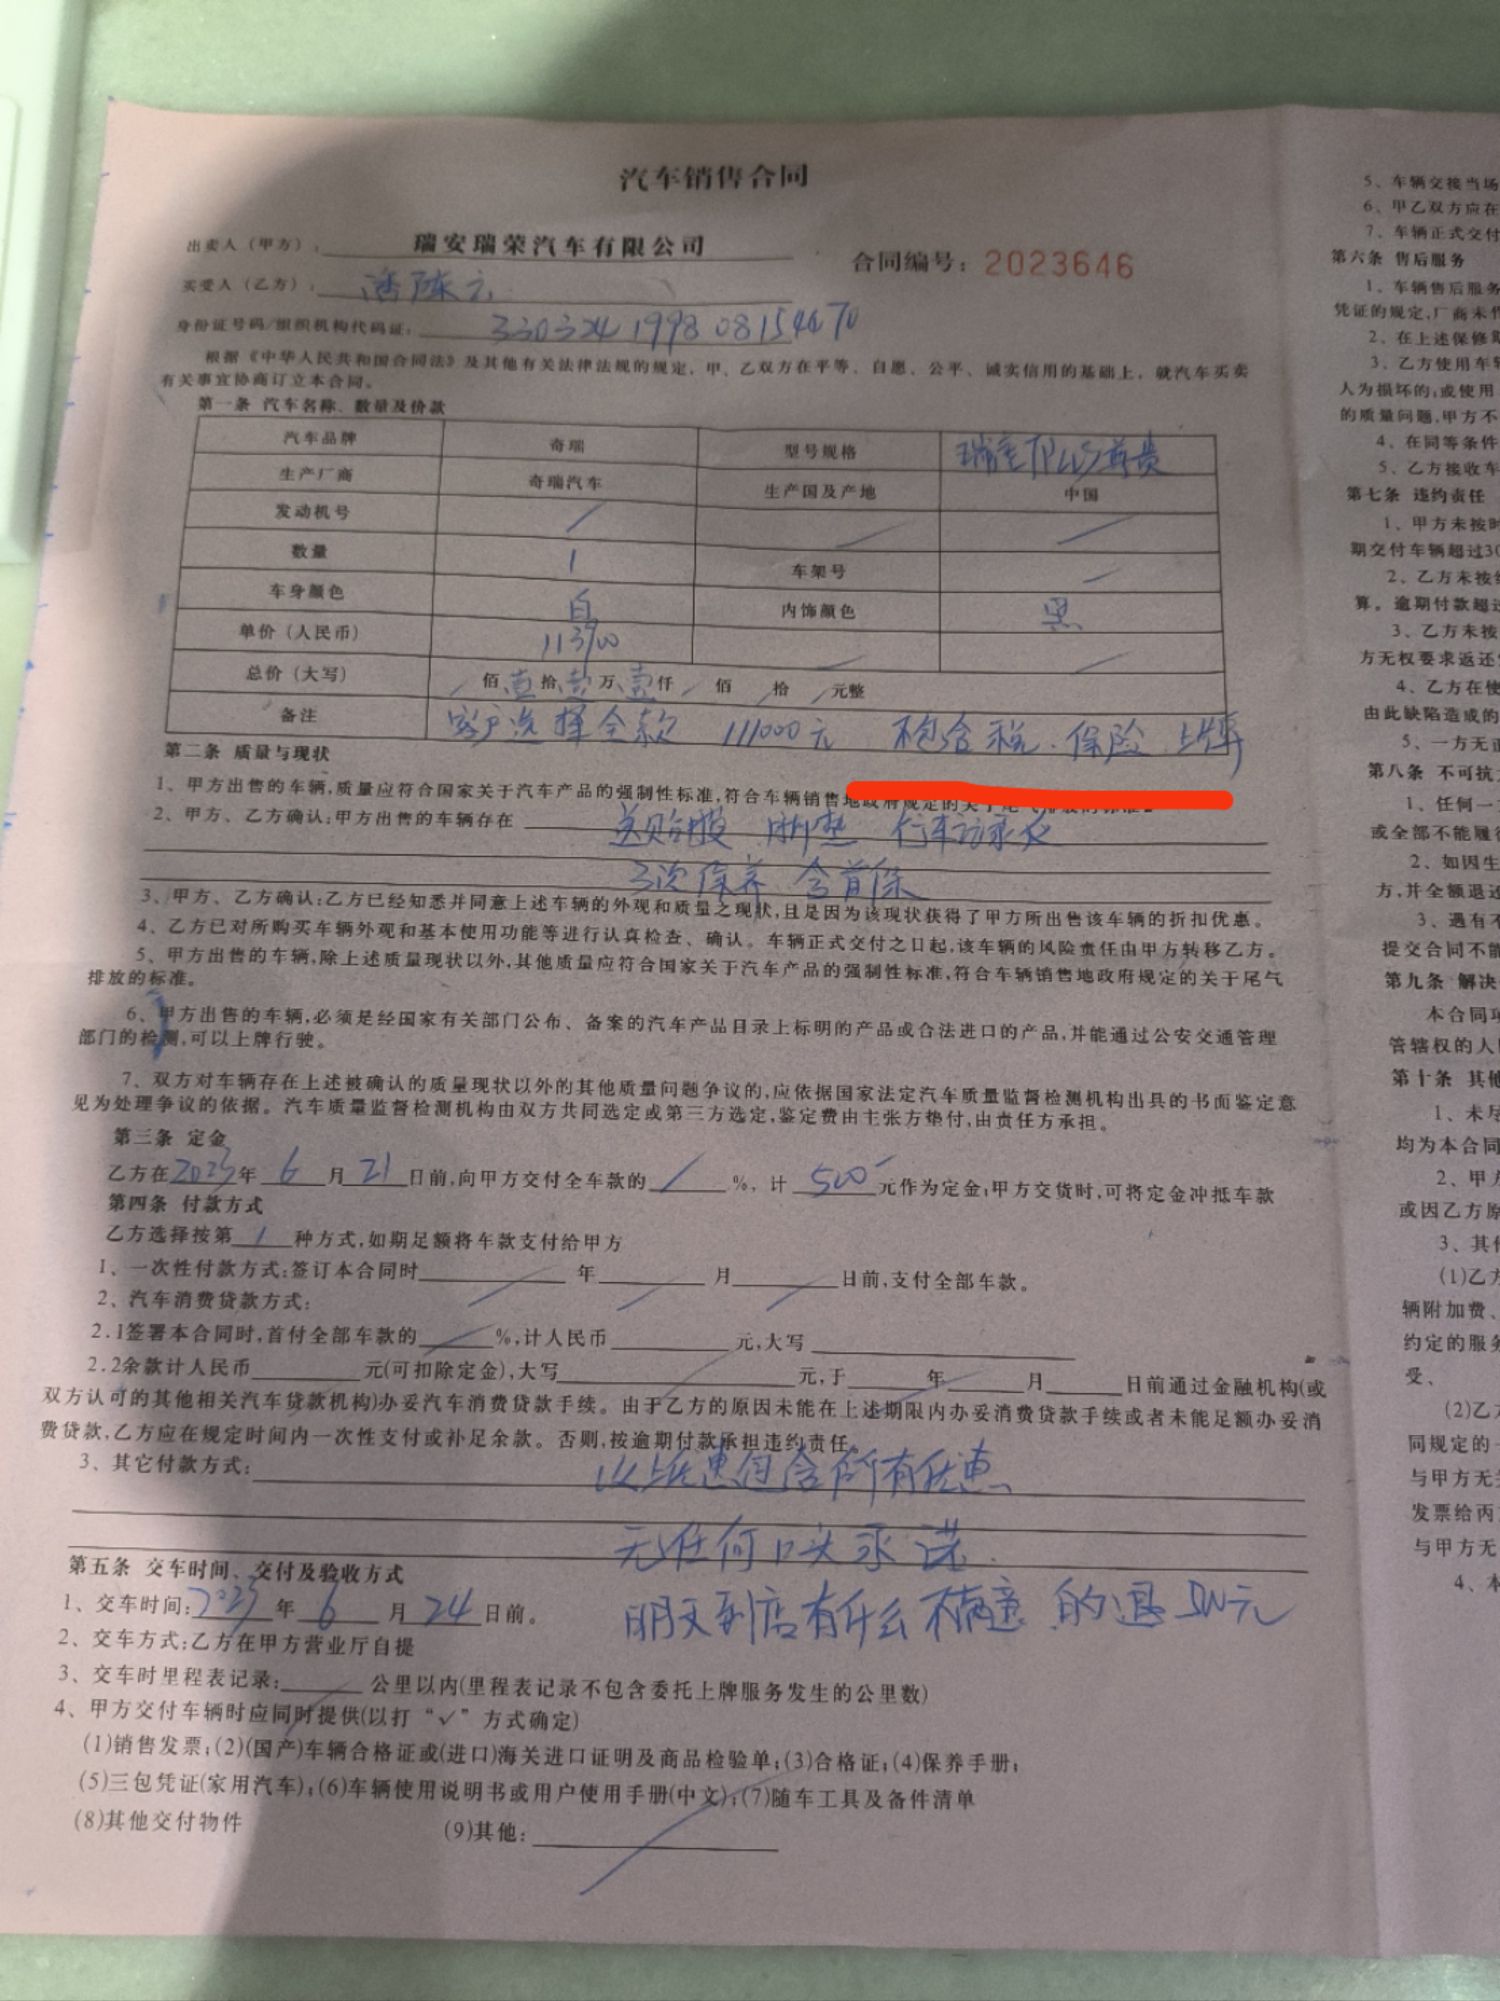 汽车销售合同
出卖人（甲方）： 瑞安瑞荣汽车有限公司
合同编号：2023646
买受人（乙方）： 潘陈云
身份证号码/组织机构代码证：
根据《中华人民共和国合同法》及其他有关法律法规的规定，甲、乙双方在平等、自愿、公平、诚实信用的基础上，就汽车买卖
有关事宜协商订立本合同。
第一条 汽车名称、数量及价款
汽车品牌 奇瑞 型号规格 瑞虎7PLUS尊贵
生产厂商 奇瑞汽车 生产国及产地 中国
发动机号 / / /
数量 1 车架号 /
车身颜色 白 内饰颜色 黑
单价（人民币） 113900 / /
总价（大写） / 佰 壹 拾 壹 万 壹 仟 / 佰 / 拾 / 元整
备注 客户选择全款 111000元 包含税、保险、上牌
第二条 质量与现状
1、甲方出售的车辆,质量应符合国家关于汽车产品的强制性标准,符合车辆销售地政府规定的关于尾气排放的标准。
2、甲方、乙方确认:甲方出售的车辆存在 送贴膜 脚垫 行车记录仪
3次保养 含首保
3、甲方、乙方确认:乙方已经知悉并同意上述车辆的外观和质量之现状,且是因为该现状获得了甲方所出售该车辆的折扣优惠。
4、乙方已对所购买车辆外观和基本使用功能等进行认真检查、确认。车辆正式交付之日起,该车辆的风险责任由甲方转移乙方。
5、甲方出售的车辆,除上述质量现状以外,其他质量应符合国家关于汽车产品的强制性标准,符合车辆销售地政府规定的关于尾气
排放的标准。
6、甲方出售的车辆,必须是经国家有关部门公布、备案的汽车产品目录上标明的产品或合法进口的产品,并能通过公安交通管理
部门的检测,可以上牌行驶。
7、双方对车辆存在上述被确认的质量现状以外的其他质量问题争议的,应依据国家法定汽车质量监督检测机构出具的书面鉴定意
见为处理争议的依据。汽车质量监督检测机构由双方共同选定或第三方选定,鉴定费由主张方垫付,由责任方承担。
第三条 定金
乙方在2023年 6 月 21 日前,向甲方交付全车款的 / %, 计 500 元作为定金;甲方交货时,可将定金冲抵车款
第四条 付款方式
乙方选择按第 1 种方式,如期足额将车款支付给甲方
1、一次性付款方式:签订本合同时 / 年 / 月 / 日前,支付全部车款。
2、汽车消费贷款方式:
2.1签署本合同时,首付全部车款的 / %,计人民币 元,大写
2.2余款计人民币 元(可扣除定金),大写 元,于 年 月 日前通过金融机构(或
双方认可的其他相关汽车贷款机构)办妥汽车消费贷款手续。由于乙方的原因未能在上述期限内办妥消费贷款手续或者未能足额办妥消
费贷款,乙方应在规定时间内一次性支付或补足余款。否则,按逾期付款承担违约责任
3、其它付款方式: 以上优惠包含所有优惠
无任何口头承诺.
第五条 交车时间、交付及验收方式
1、交车时间:2023 年 6 月 24 日前。
明天到店有什么不满意的退500元
2、交车方式:乙方在甲方营业厅自提
3、交车时里程表记录: 公里以内(里程表记录不包含委托上牌服务发生的公里数)
4、甲方交付车辆时应同时提供(以打“✓”方式确定)
(1)销售发票;(2)(国产)车辆合格证或(进口)海关进口证明及商品检验单;(3)合格证;(4)保养手册;
(5)三包凭证(家用汽车);(6)车辆使用说明书或用户使用手册(中文);(7)随车工具及备件清单
(8)其他交付物件 (9)其他:
5、车辆交接当场
6、甲乙双方应在
7、车辆正式交付
第六条 售后服务
1、车辆售后服务
凭证的规定,厂商未作
2、在上述保修期
3、乙方使用车辆
人为损坏的;或使用
的质量问题,甲方不
4、在同等条件
5、乙方接收车
第七条 违约责任
1、甲方未按时
期交付车辆超过30
2、乙方未按
算。逾期付款超过
3、乙方未按
方无权要求返还
4、乙方在使
由此缺陷造成的
5、一方无正
第八条 不可抗
1、任何一
或全部不能履行
2、如因生
方,并全额退还
3、遇有不
提交合同不能
第九条 解决
本合同项
管辖权的人民
第十条 其他
1、未尽
均为本合同
2、甲方
或因乙方原
3、其他
(1)乙方
辆附加费、
约定的服务
受、
(2)乙方
同规定的
与甲方无
发票给丙
与甲方无
4、本